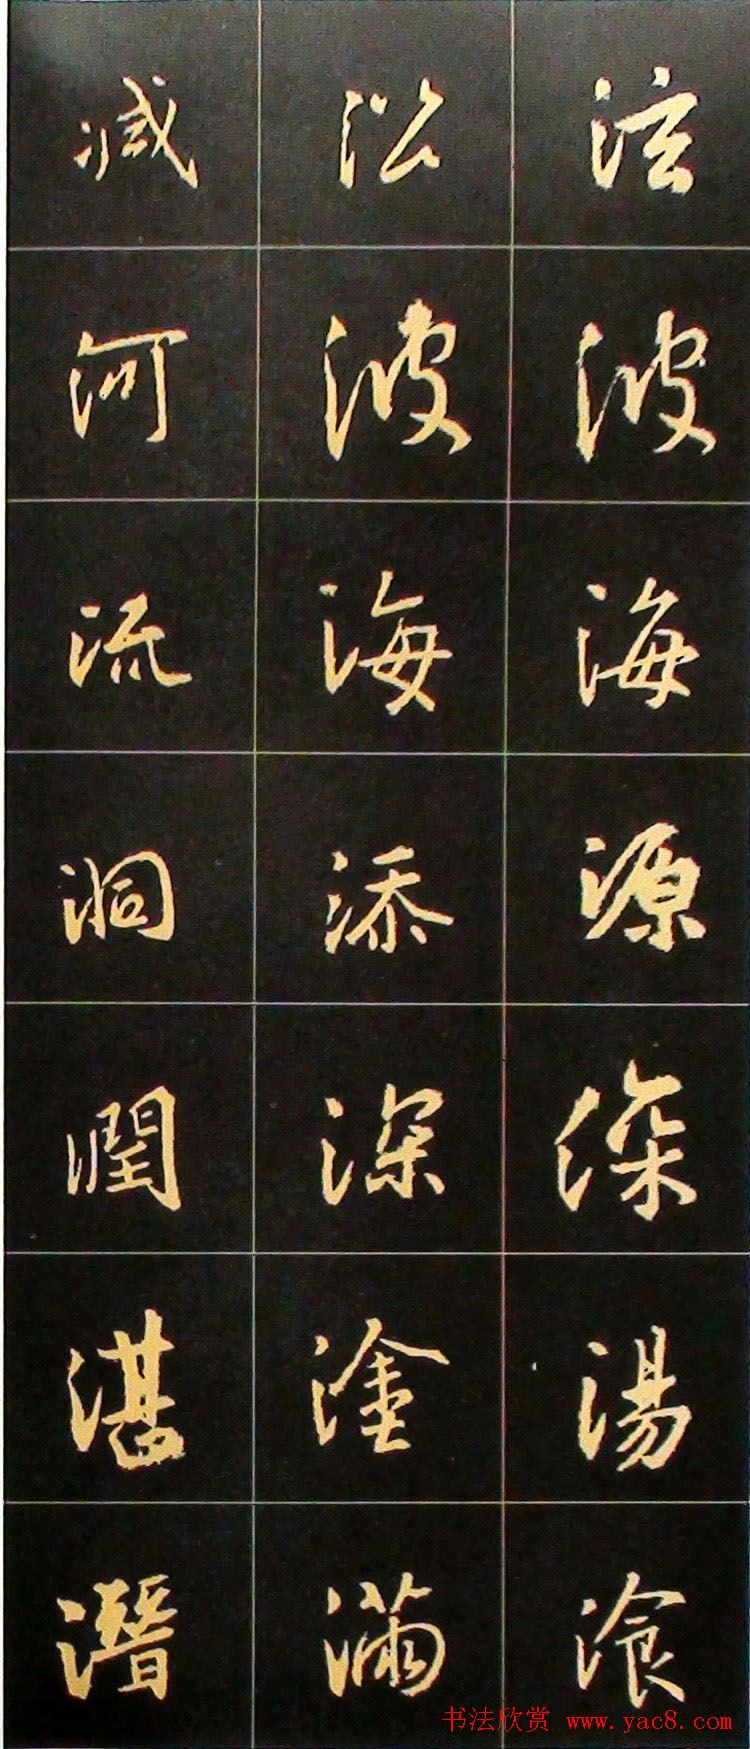 泫波海源深湯湌
㳂波海添深塗滿
减河流洞潤湛潛
书法欣赏 www.yac8.com